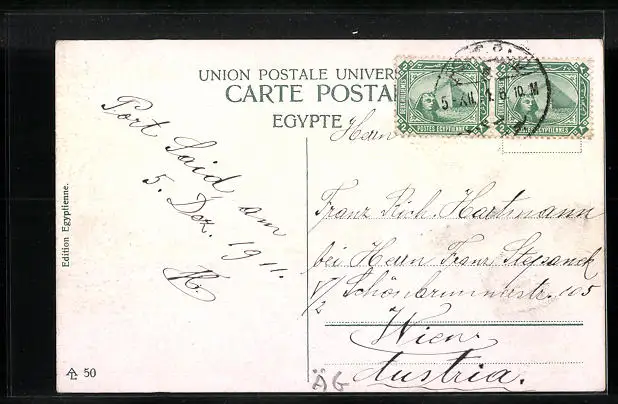 UNION POSTALE UNIVERS
CARTE POSTAL
EGYPTE
Port Said am
5. Dez. 1911.
Herrn
Franz Rich. Hartmann
bei Herrn Franz
V/2 Schönbrunnerstr. 105
Wien
Austria.
ÄG
Edition Egyptienne.
50
POSTES EGYPTIENNES
POSTES EGYPTIENNES
5-XII